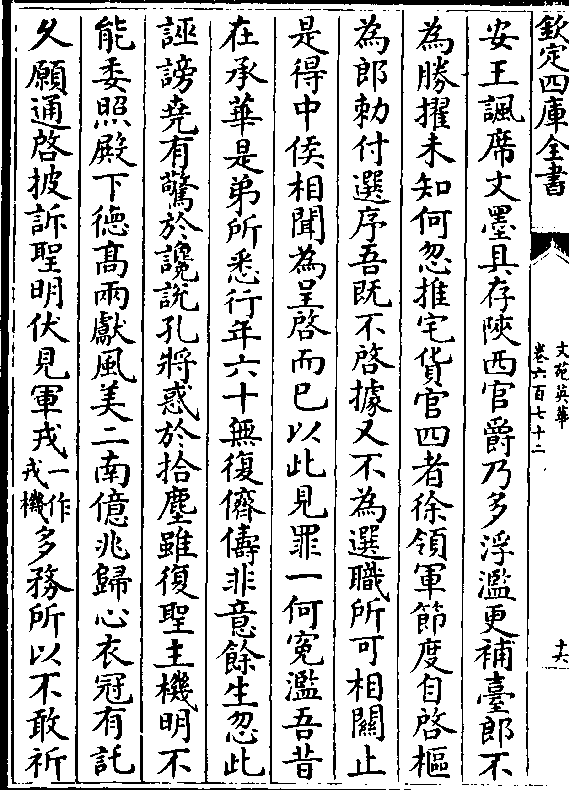 欽定四庫全書
文苑英華
卷六百七十二
十六
安王諷席文墨具存陜西官爵乃多浮濫更補臺郎不
為勝擢未知何忽推宅貨官四者徐領軍節度自啓樞
為郎勑付選序吾既不啓據又不為選職所可相關止
是得中侯相聞為呈啓而已以此見罪一何寃濫吾昔
在承華是弟所悉行年六十無復儕儔非意餘生忽此
誣謗堯有驚於讒説孔將惑於拾塵雖復聖主機明不
能委照殿下德髙兩獻風美二南億兆歸心衣冠有託
久願通啓披訴聖明伏見軍戎一作戎機多務所以不敢祈